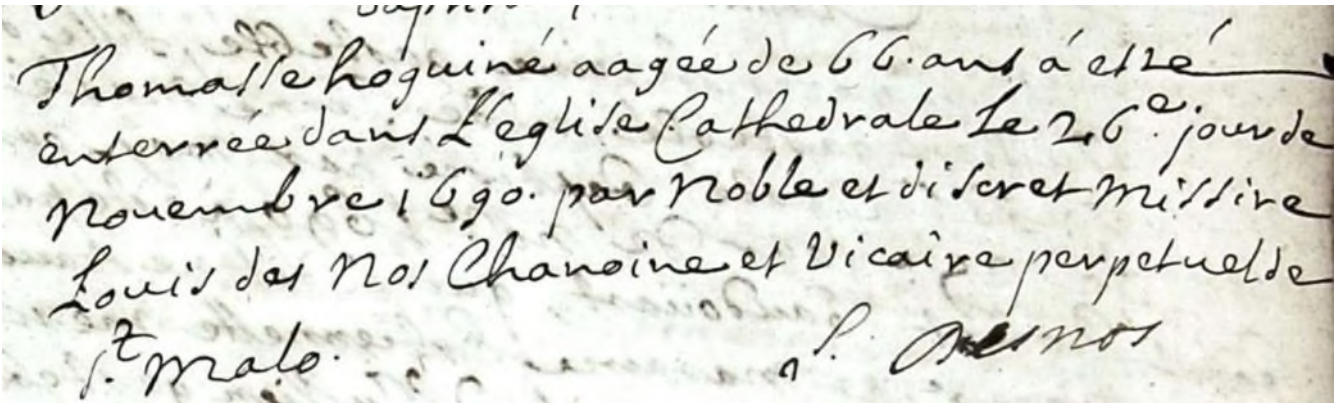 Thomasse hoguiné aagée de 66. ans á esté
enterrée dans L'eglise Cathedrale Le 26e. jour de
Novembre 1690. par Noble et discret Missire
Louis des Nos Chanoine et Vicaire perpetuel de
St. Malo. L. Desnos